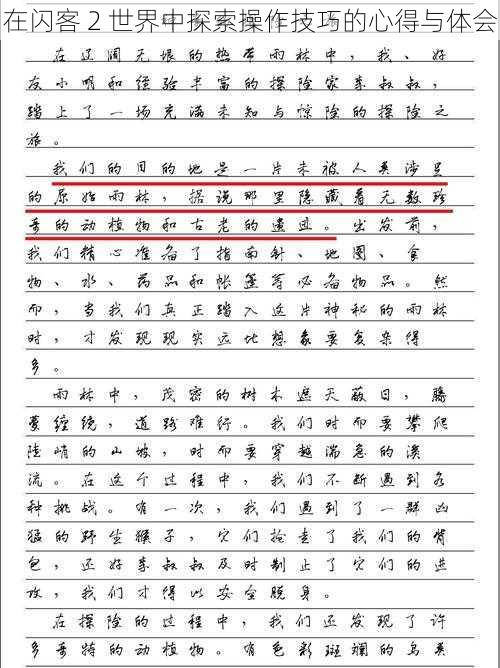 在闪客2世界中探索操作技巧的心得与体会
在辽阔无垠的热带雨林中，我、好
友小明和经验丰富的探险家李叔叔，
踏上了一场充满未知与惊险的探险之
旅。
我们的目的地是一片未被人类涉足
的原始雨林，据说那里隐藏着无数珍
奇的动植物和古老的遗迹。出发前，
我们精心准备了指南针、地图、食
物、水、药品和帐篷等必备物品。然
而，当我们真正踏入这片神秘的雨林
时，才发现现实远比想象要复杂得
多。
雨林中，茂密的树木遮天蔽日，藤
蔓缠绕，道路难行。我们时而要攀爬
陡峭的山坡，时而要穿越湍急的溪
流。在这个过程中，我们不断遇到各
种挑战。有一次，我们遇到了一群凶
猛的野生猴子，它们抢走了我们的背
包，还好李叔叔及时制止了它们的进
攻，我们才得以安全脱身。
在探险的过程中，我们还发现了许
多奇特的动植物。有色彩斑斓的鸟类